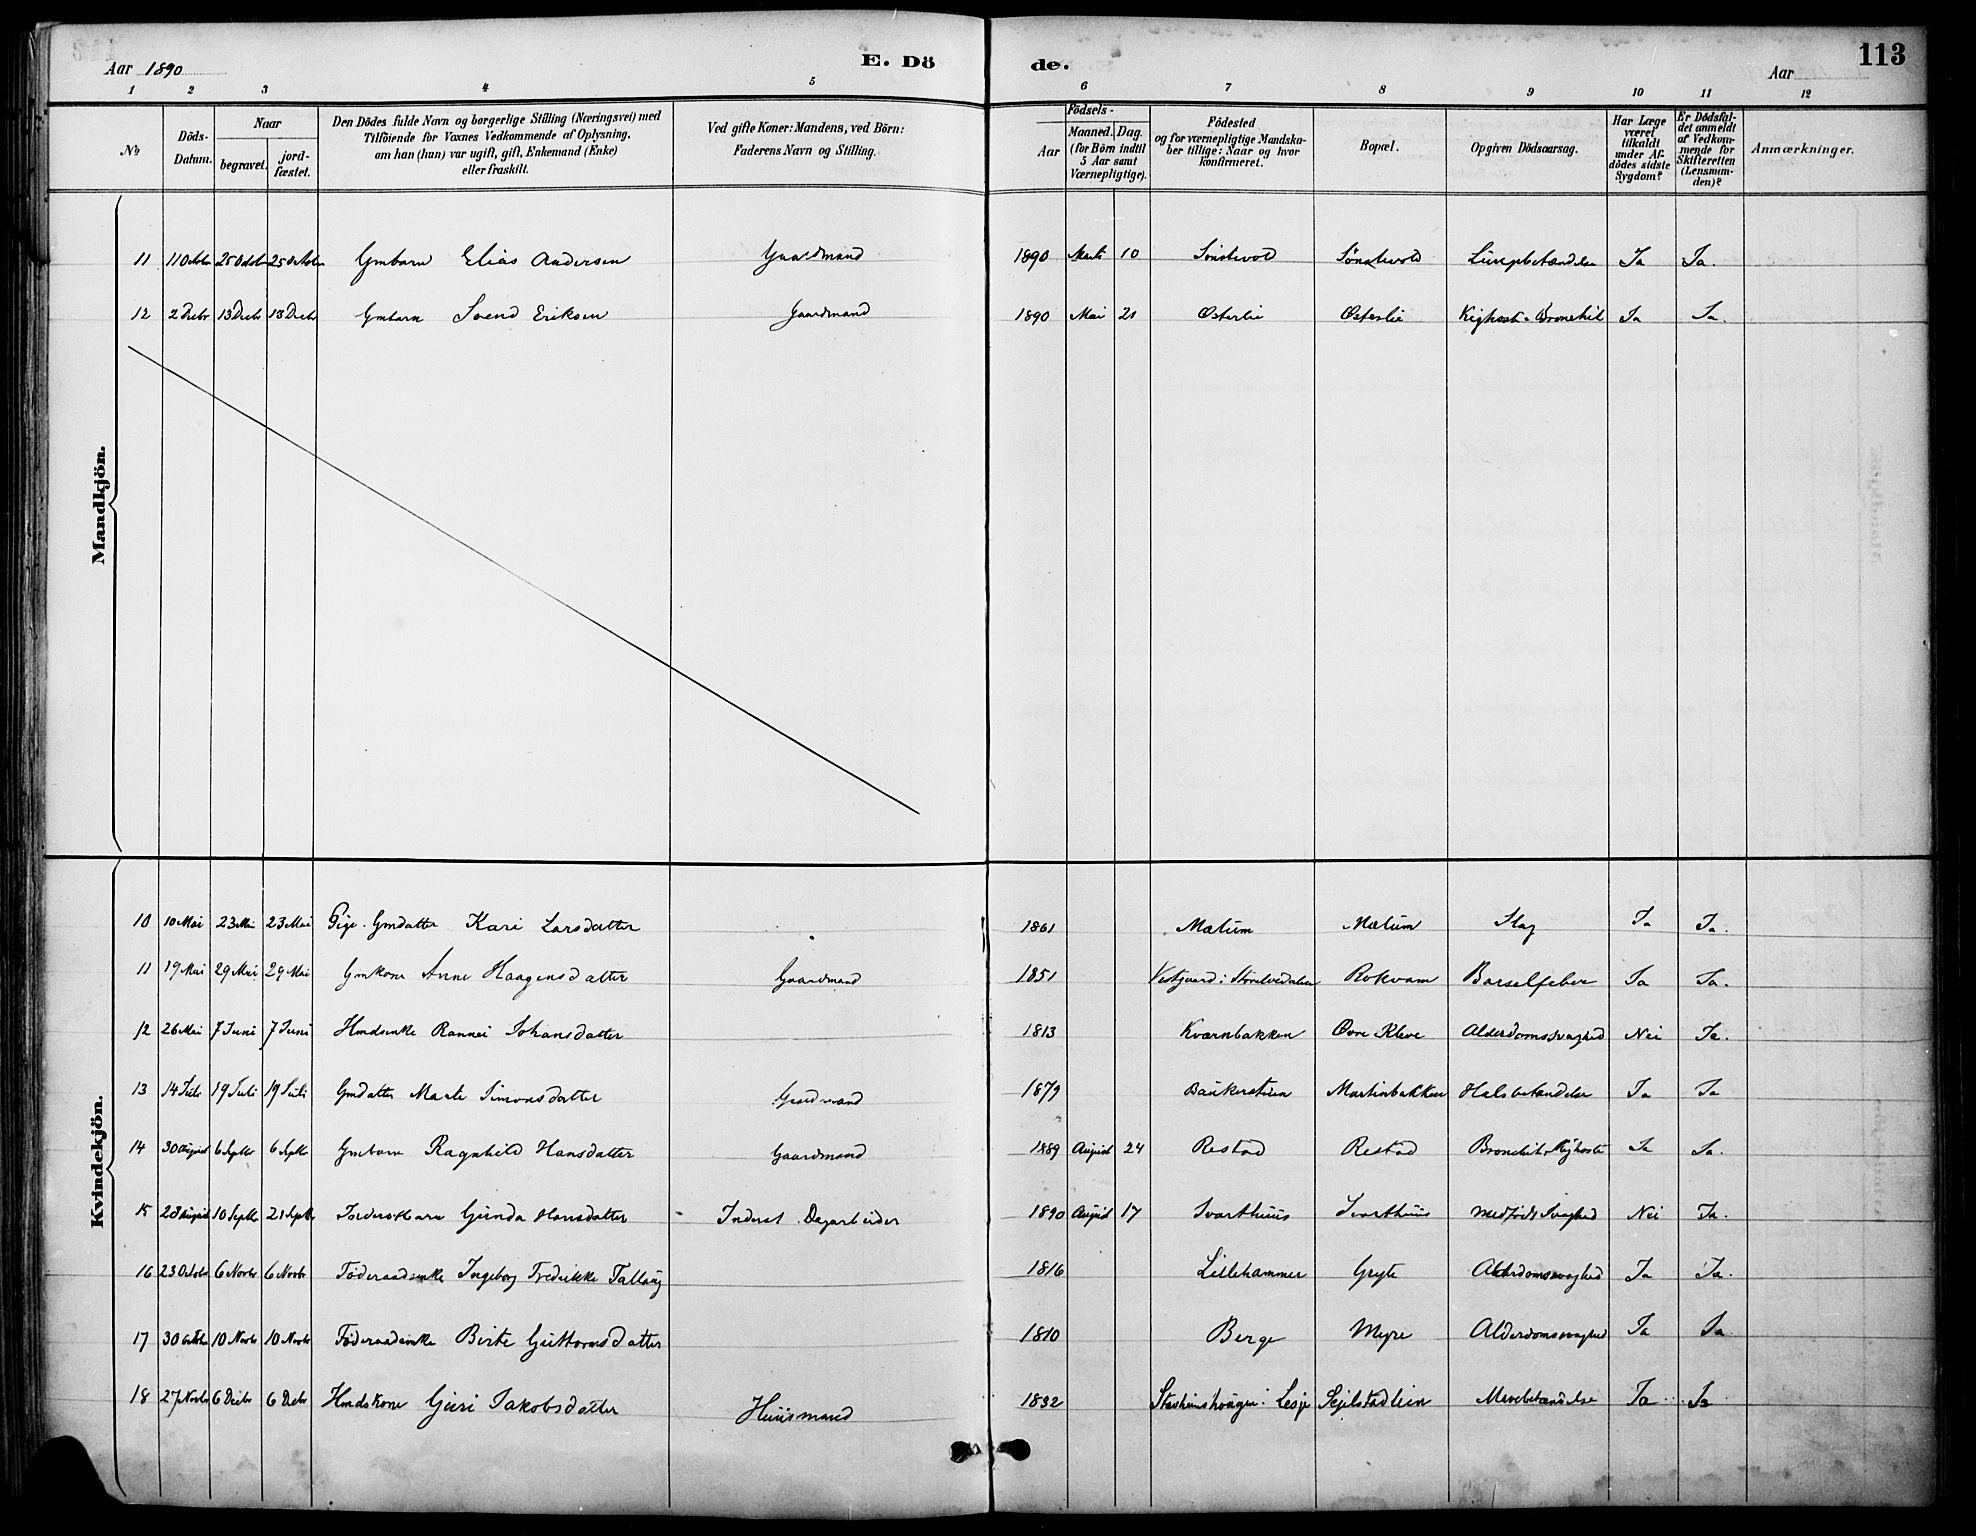 Aar 1890 E. Dö de. Aar 113
1 2 3 4 5 6 7 8 9 10 11 12
No
Döds-Datum.
Naar
begravet.
jordfæstet.
Den Dödes fulde Navn og borgerlige Stilling (Næringsvei) med
Tilföiende for Voxnes Vedkommende af Oplysning,
om han (hun) var ugift, gift, Enkemand (Enke)
eller fraskilt.
Ved gifte Koner: Mandens, ved Börn:
Faderens Navn og Stilling.
Födsels-
Aar
Maaned. Dag.
(for Börn indtil
5 Aar samt
Værnepligtige).
Födested
og for værnepligtige Mandska-
ber tillige: Naar og hvor
konfirmeret.
Bopæl.
Opgiven Dödsaarsag.
Har Læge
været
tilkaldt
under Af-
dödes sidste
Sygdom?
Er Dödsfal-
det anmeldt
af Vedkom-
mende for
Skifteretten
(Lensman-
den)?
Anmærkninger.
Mandkjön.
11 11 Octobr 25 Octobr 25 October Gmbarn Elias Andersen Gaardmand 1890 Marts 10 Sönstevold Sönstevold Lungebetændelse Ja Ja.
12 2 Decbr 13 Decbr 13 Decbr Gmbarn Svend Eriksen Gaardmand 1890 Mai 21 Østerlie Østerlie Kighoste Bronchit Ja Ja.
Kvindekjön.
10 10 Mai 23 Mai 23 Mai Pige. Gmdatter Kari Larsdatter 1861 Mælum Mælum Slag Ja Ja.
11 19 Mai 29 Mai 29 Mai Gmkone Anne Haagensdatter Gaardmand 1851 Rokvam Barselfeber Ja Ja.
12 26 Mai 7 Juni 7 Juni Hmdsenke Rannei Johansdatter 1813 Kværnbakken Øvre Kleve Alderdomssvaghed Nei Ja.
13 14 Juli 19 Juli 19 Juli Gmdatter Marte Simonsdatter Gaardmand 1879 Martinbakken Halsbetændelse Ja Ja
14 30 August 6 Septbr 6 Septbr Gmbarn Ragnhild Hansdatter Gaardmand 1889 August 24 Restad Restad Bronchit Kighoste Ja Ja.
15 28 August 10 Septbr 21 Septbr Inderstbarn Gunda Hansdatter Inderst Dagarbeider 1890 August 17 Svarthuus Svarthuus Medfödt Svaghed Nei Ja.
16 23 Octobr 6 Novbr 6 Novbr Föderaadsenke Ingeborg Fredrikke Tallaug 1816 Lillehammer Gryte Alderdomssvaghed Ja Ja.
17 30 Octobr 10 Novbr 10 Novbr Föderaadsenke Birte Guttormsdatter 1810 Berge Myre Alderdomssvaghed Ja Ja
18 27 Novbr 6 Decbr 6 Decbr Hmdskone Guri Jakobsdatter Huusmand 1832 Lesje Mavebetændelse Ja Ja